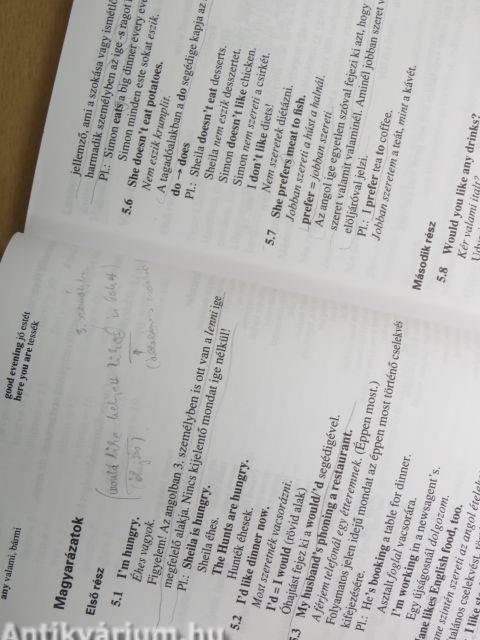 any valami, bármi
good evening jó estét
here you are tessék
Magyarázatok
Első rész
5.1 I'm hungry.
Éhes vagyok.
Figyelem! Az angolban 3. személyben is ott van a lenni ige
megfelelő alakja. Nincs kijelentő mondat ige nélkül!
Pl.: Sheila is hungry.
Sheila éhes.
The Hunts are hungry.
Hunték éhesek.
5.2 I'd like dinner now.
Most szeretnék vacsorázni.
I'd = I would (rövid alak)
Óhajtást fejez ki a would/'d segédigével.
5.3 My husband's phoning a restaurant.
A férjem telefonál egy étteremnek. (Éppen most.)
Folyamatos jelen idejű mondat az éppen most történő cselekvés
kifejezésére.
Pl.: He's booking a table for dinner.
Asztalt foglal vacsorára.
I'm working in a newsagent's.
Egy újságosnál dolgozom.
likes English food, too.
szintén szereti az angol
jellemző, ami a szokása vagy ismétlő
harmadik személyben az ige -s ragot
Pl.: Simon eats a big dinner every eve
Simon minden este sokat eszik.
5.6 She doesn't eat potatoes.
Nem eszik krumplit.
A tagadóalakban a do segédige kapja az
do → does
Pl.: Sheila doesn't eat desserts.
Sheila nem eszik desszertet.
Simon doesn't like chicken.
Simon nem szereti a csirkét.
I don't like diets!
Nem szeretek diétázni.
5.7 She prefers meat to fish.
Jobban szereti a húst a halnál.
prefer = jobban szereti
Az angol ige egyetlen szóval fejezi ki azt, hogy
szeret valamit valaminél. Aminél jobban szeret v
elöljáróval jelzi.
Pl.: I prefer tea to coffee.
Jobban szeretem a teát, mint a kávét.
Második rész
5.8 Would you like any drinks?
Kér valami italt?
Antikvárium.hu